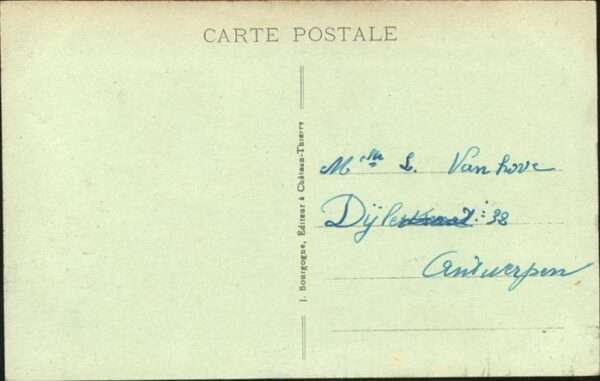 CARTE POSTALE
J. Bourgogne, Editeur à Château-Thierry
L. Vanhove
38
Antwerpen